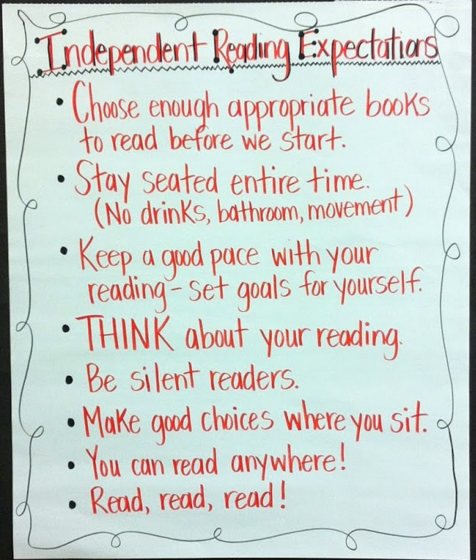 Independent Reading Expectations
• Choose enough appropriate books
to read before we start.
• Stay seated entire time.
(No drinks, bathroom, movement)
• Keep a good pace with your
reading - set goals for yourself.
• THINK about your reading.
• Be silent readers.
• Make good choices where you sit.
• You can read anywhere!
• Read, read, read!